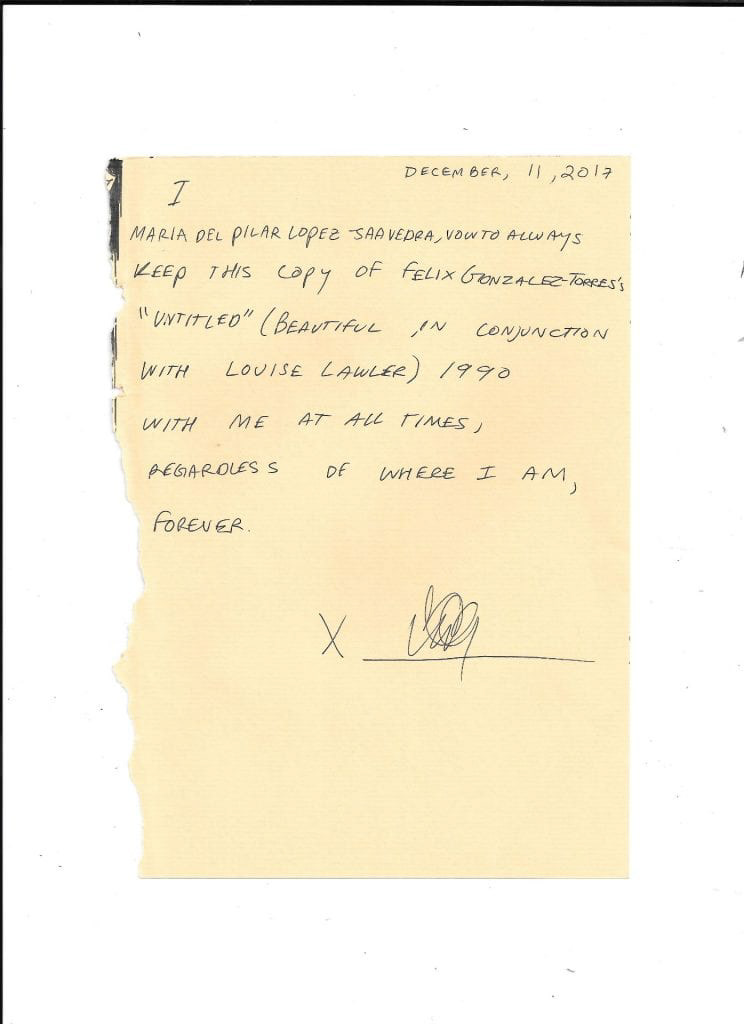 DECEMBER, 11, 2017
I
MARIA DEL PILAR LOPEZ-SAAVEDRA, VOW TO ALWAYS
KEEP THIS COPY OF FELIX GONZALEZ-TORRES'S
"UNTITLED" (BEAUTIFUL, IN CONJUNCTION
WITH LOUISE LAWLER) 1990
WITH ME AT ALL TIMES,
REGARDLESS OF WHERE I AM,
FOREVER.
X